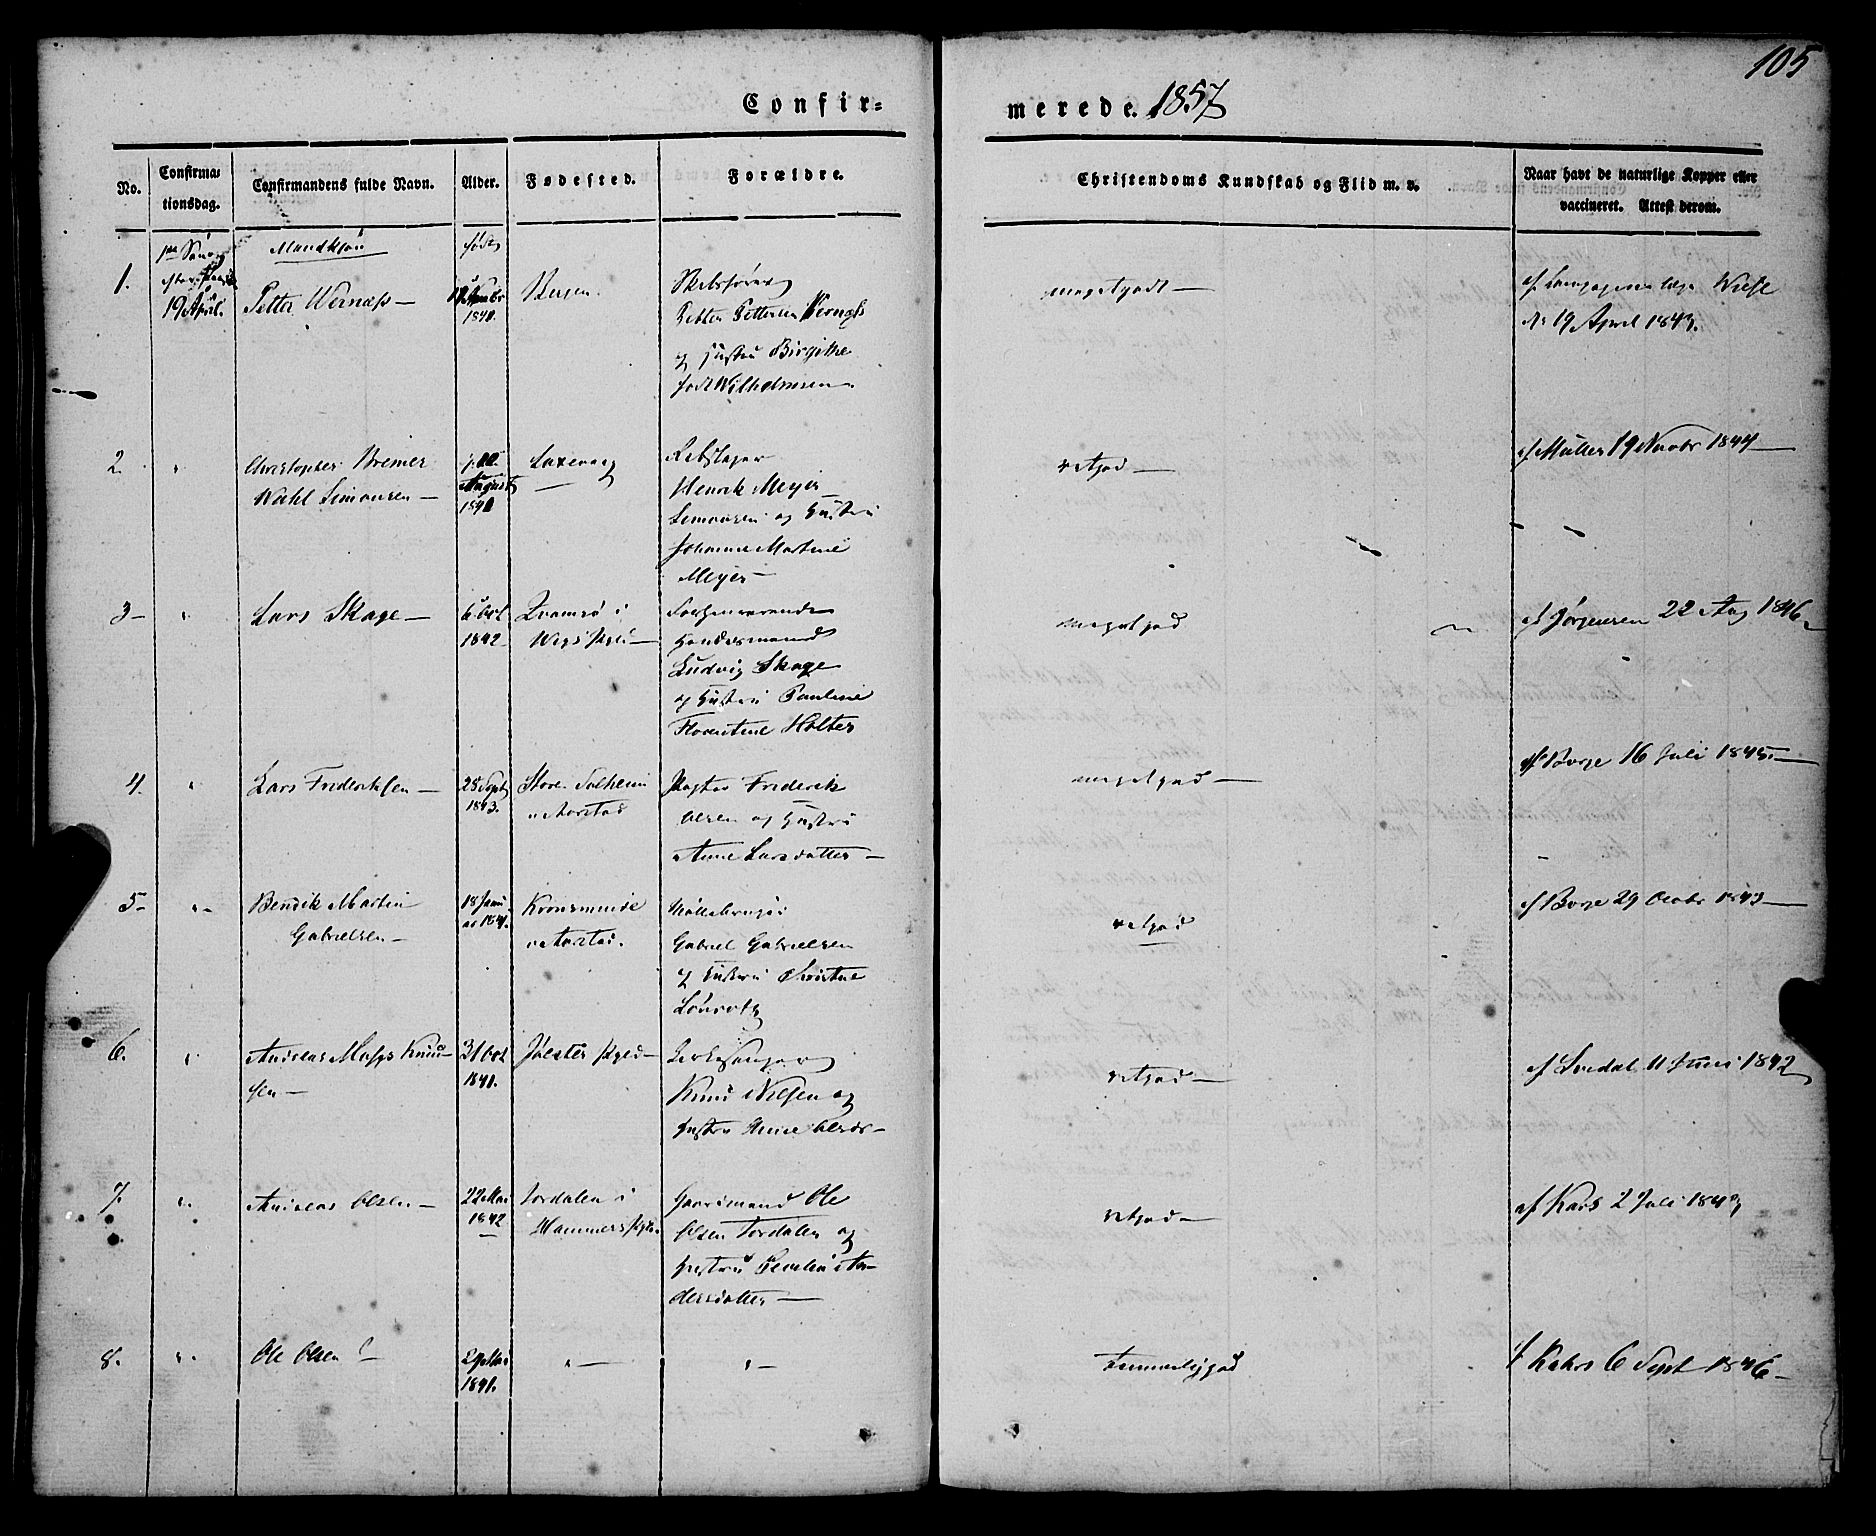 105
Confir=
merede. 1857
No.
Confirma-
tionsdag.
Confirmandens fulde Navn.
Alder.
Fødested.
Forældre.
Christendoms Kundskab og Flid m. v.
Naar havt de naturlige Kopper eller
vaccineret. Attest derom.
Mandkjøn
født
1.
19 April.
Petter Wernæss —
1841.
Bergen.
Skibsfører
Petter Pettersen Wernæss
og Hustru Birgithe
født Wilhelmsen
megetgodt —
Wiese
19 April 1843.
2.
"
Christopher Bremer
Wahl Simonsen —
August
1841
Laxevaag
Rebslager
Henrik Meyer
Simonsen og Hustru
Johanne Martine
Meyer —
vetgod —
af Müller 19 Novbr 1844 —
3 —
"
Lars Skage —
6 Oct
1842
Evamsø i
Wigs Pgjd —
Forhenværende
Handelsmand
Ludvig Skage
og Hustru Pauline
Florentine Holter
megetgod
af Jörgensen 22 Aug 1846.
4.
"
Lars Fredriksen —
28 Sept
1843.
Store Solheim
i Aarstad
Pagter Frederik
Olsen og Hustru
Anne Larsdatter —
megetgod —
af Borge 16 Juli 1845. —
5 —
"
Bendik Martin
Gabrielsen —
18 Janu
ar 1841.
Kronsminde
i Aarstad.
Gabriel Gabrielsen
og Hustru Christine
vetgod
af Borge 29 Octbr 1843 —
6.
"
Andreas Knud—
sen —
31 Oct
1841.
Jölster Pgjd —
Kirkesanger
Knud Nilsen og
Hustru Anne Olsdr —
vetgod —
af Svedal 11 Juni 1842
7.
"
Andreas Olsen —
22 Mai
1842
Tordalen i
Hammers Pgjd.
Gaardmand Ole
Olsen Tordalen og
Hustru An-
dersdatter —
vetgod —
af Kars 2 Juli 1843
8.
"
Ole Olsen —
29 Mai
1841.
" —
" —
Temmeliggod
af Kahrs 6 Sept 1846 —